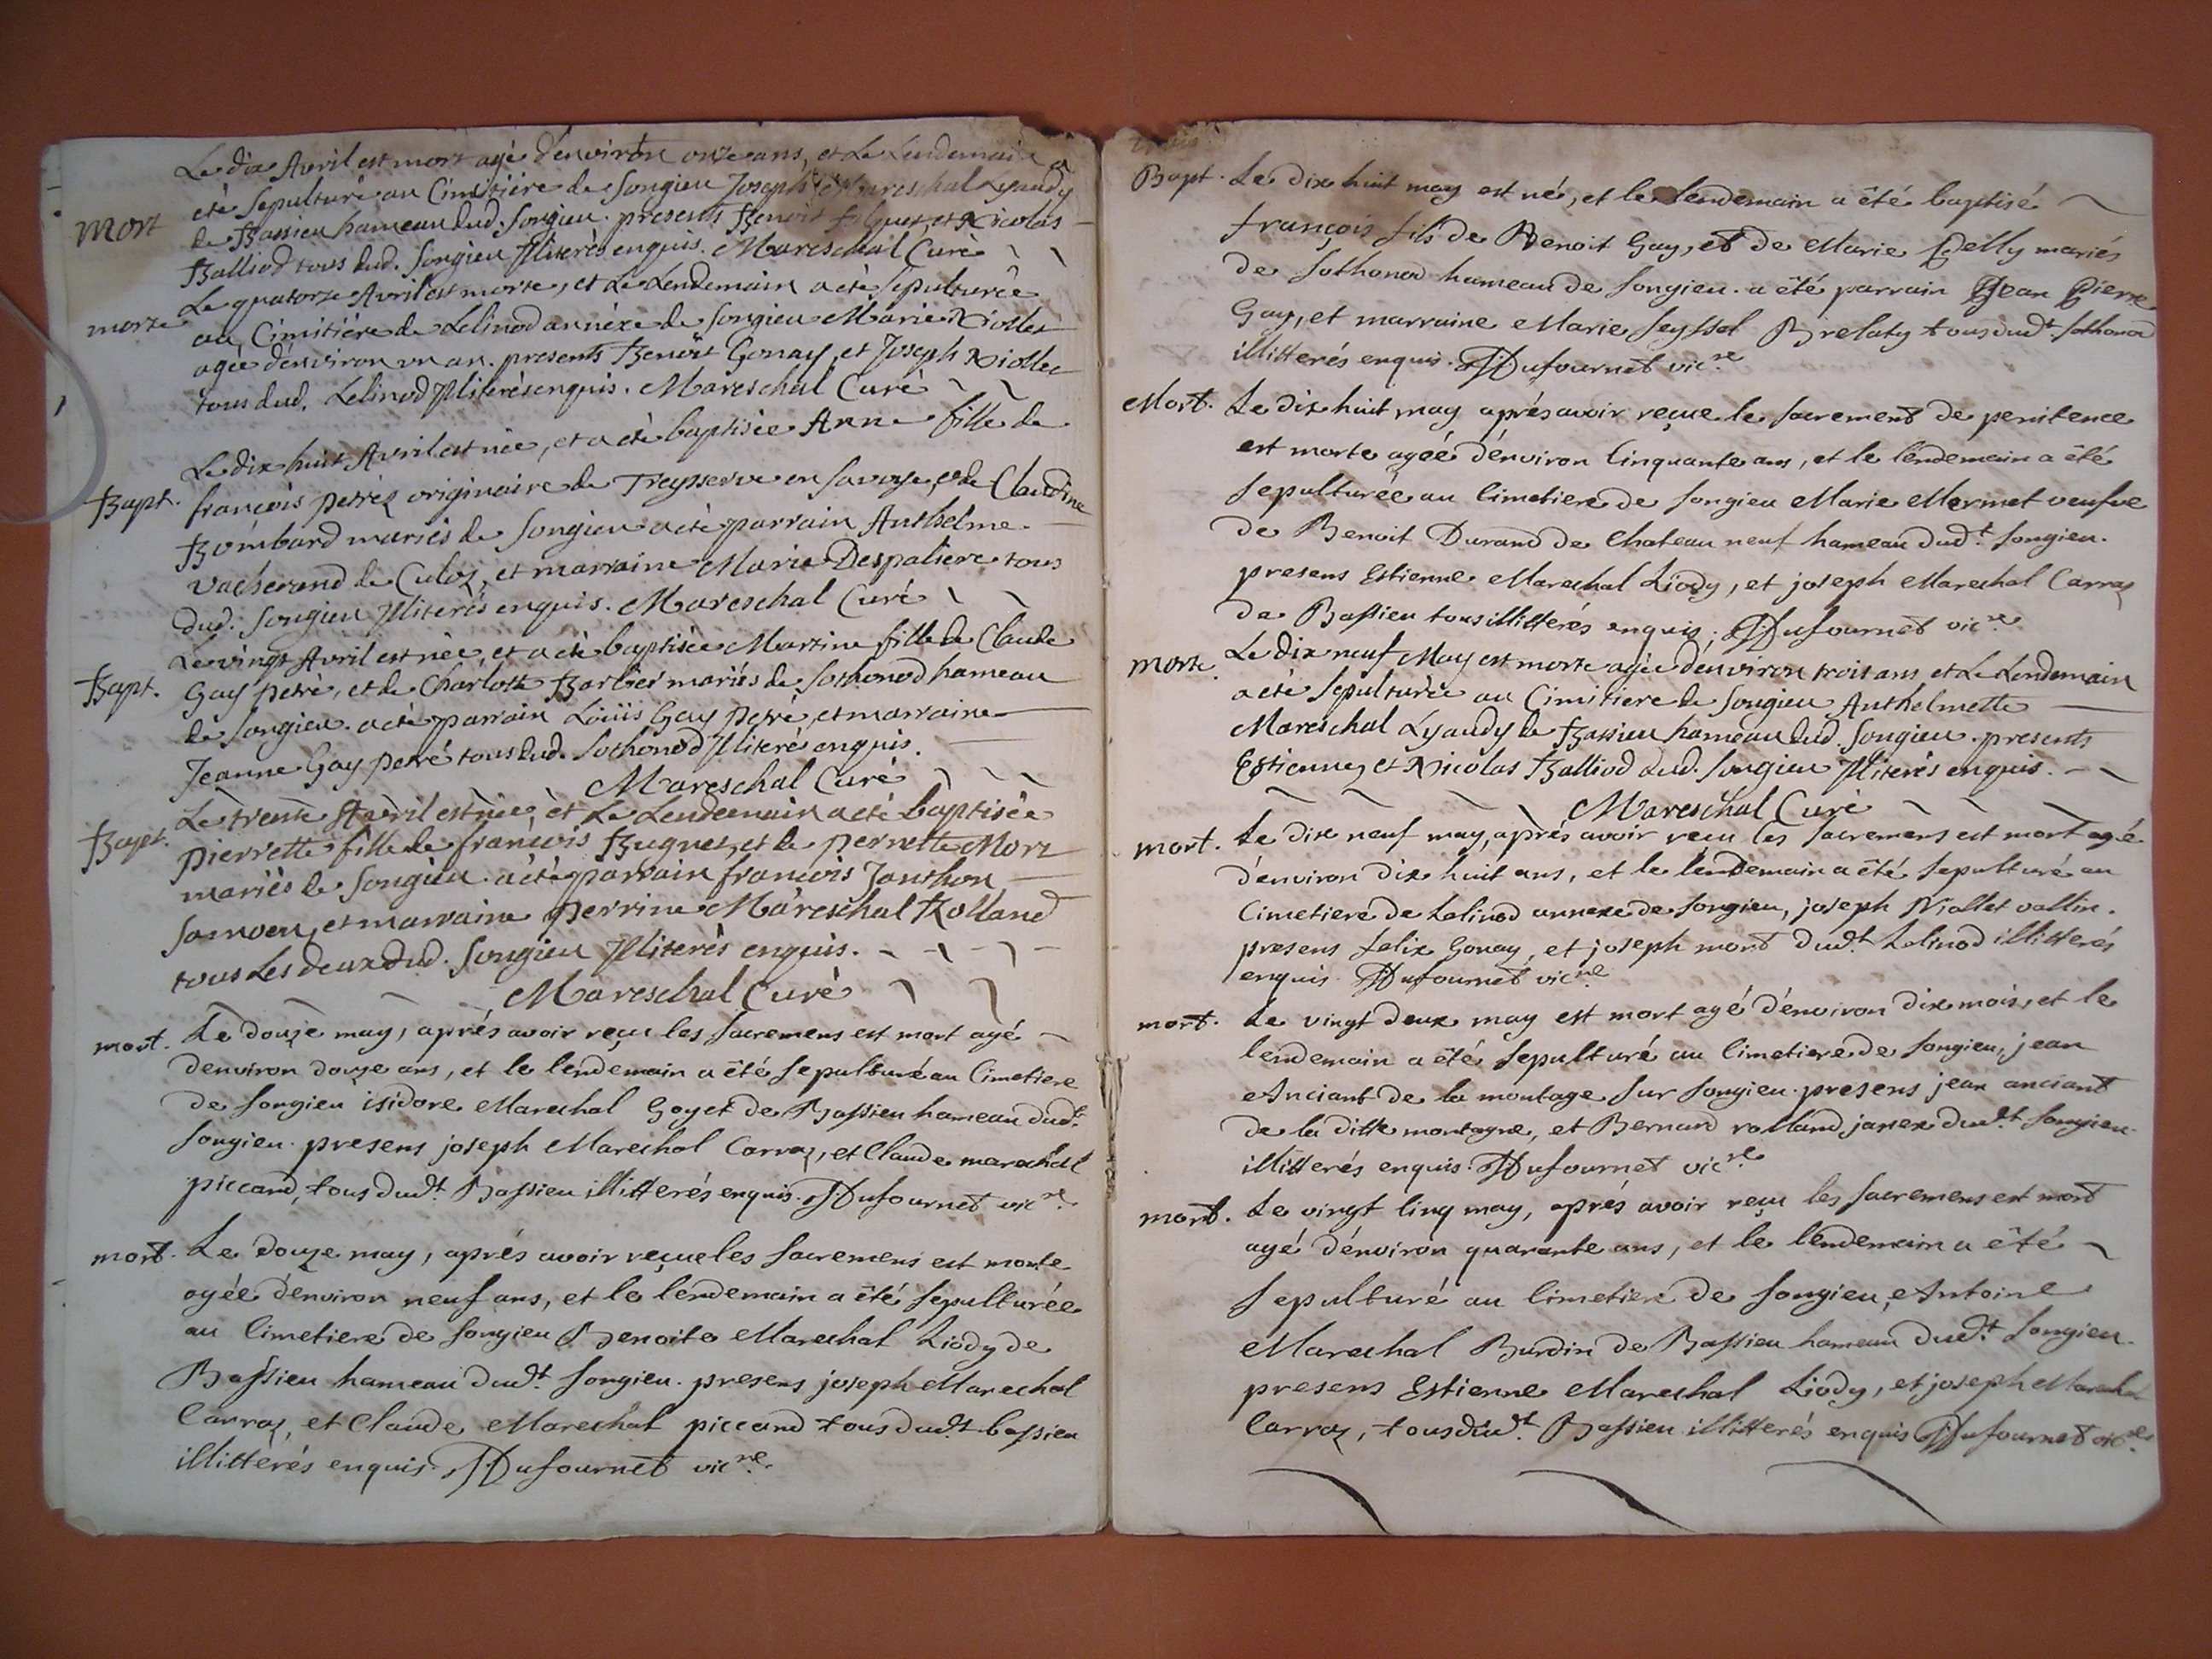 Le dix Avril est mort agé d'environ onze ans, et Le Lendemain a
mort
eté sepulturé au Cimitière de Songieu Joseph Mareschal Lyaudy
de Bassieu hameau dud. Songieu. presents Benoit et Nicolas
Balliod tous dud. Songieu Illiterés enquis. Mareschal Curé
morte
Le quatorze Avril est morte, et Le Lendemain a eté sepulturée
au Cimitière de Lelinod annèxe de Songieu Marie Niollet
agée d'environ un an. presents Benoit Gonay, et Joseph Niollet
tous dud. Lelinod Illiterés enquis. Mareschal Curé
Bapt.
Le dix huit Avril est née, et a eté baptisée Anne fille de
françois petréz originaire de Treysserve en Savoye, et de Claudine
Bombard mariés de Songieu a eté parrain Anthelme
Vacherand de Culoz, et marraine Marie Despaliere tous
dud. Songieu Illiterés enquis. Mareschal Curé
Bapt.
Le vingt Avril est née, et a eté baptisée Martine fille de Claude
Gay petré, et de Charlotte Barbier mariés de Sothonod hameau
de Songieu. a eté parrain Loüis Gay petré, et marraine
Jeanne Gay petré tous dud. Sothonod Illiteré enquis.
Mareschal Curé
Bapt.
Le trente Avril est née, et Le Lendemain a eté baptisée
pierrette fille de françois Buguet, et de pernette Mort
mariés de Songieu. a eté parrain françois Janthon
Samoen, et marraine perrine Mareschal Rolland
tous Les deux dud. Songieu Illiterés enquis.
Mareschal Curé
mort.
Le douze may, aprés avoir reçu les sacremens est mort agé
d'environ douze ans, et le lendemain a été sepulturé au Cimetiere
de Songieu isidore Marechal Goyet de Bassieu hameau dudt.
Songieu. presens joseph Marechal Carraz, et Claude marechal
piccand, tous dudt. Bassieu illitterés enquis. Dufournet vicre.
mort.
Le douze may, aprés avoir reçue les sacremens est morte
agée d'environ neuf ans, et le lendemain a été sepulturée
au Cimetiere de Songieu Benoite Marechal Liody de
Bassieu hameau dudt. Songieu. presens joseph Marechal
Carraz, et Claude Marechal piccand tous dudt. bassieu
illittérés enquis. Dufournet vicre.
Bapt.
Le dix huit may est né, et le lendemain a été baptisé
françois fils de Benoit Gay, et de Marie Gelly mariés
de Sothonod hameau de Songieu. a été parrain Jean Pierre
Gay, et marraine Marie Seyssel Brelaty tous dudt. Sothonod
illitterés enquis. Dufournet vicre.
Mort.
Le dix huit may aprés avoir reçue le sacrement de penitence
est morte agéé d'environ Cinquante ans, et le lendemain a été
sepulturée au Cimetiere de Songieu Marie Mermet veufve
de Benoit Durand de Chateau neuf hameau dudt. Songieu.
presens Estienne Marechal Liody, et joseph Marechal Carraz
de Bassieu tous illittérés enquis. Dufournet vicre.
morte.
Le dix neuf May est morte agée d'environ trois ans et Le Lendemain
a eté sepulturée au Cimitiere de Songieu Anthelmette
Mareschal Lyaudy de Bassieu hameau dud. Songieu. presents
Estienne, et Nicolas Balliod dud. Songieu Illiterés enquis.
Mareschal Curé
mort.
Le dix neuf may, aprés avoir reçu les sacremens est mort agé
d'environ dix huit ans, et le lendemain a été sepulturé au
Cimetiere de Lelinod annexe de Songieu, joseph Niollet vallin.
presens felix Gonay, et joseph mort dudt. Lelinod illitterés
enquis. Dufournet vicre.
mort.
Le vingt deux may est mort agé d'environ dix mois, et le
lendemain a été sepulturé au Cimetiere de Songieu, jean
Anciant de la montage sur Songieu. presens jean anciant
de la ditte montagne, et Bernard rolland janex dudt. Songieu.
illitterés enquis. Dufournet vicre.
mort.
Le vingt Cinq may, aprés avoir reçu les sacremens est mort
agé d'environ quarante ans, et le lendemain a été
sepulturé au Cimetiere de Songieu, Antoine
Marechal Burdin de Bassieu hameau dudt. Songieu.
presens Estienne Marechal Liody, et joseph Marechal
Carraz, tous dudt. Bassieu illitterés enquis Dufournet vicre.